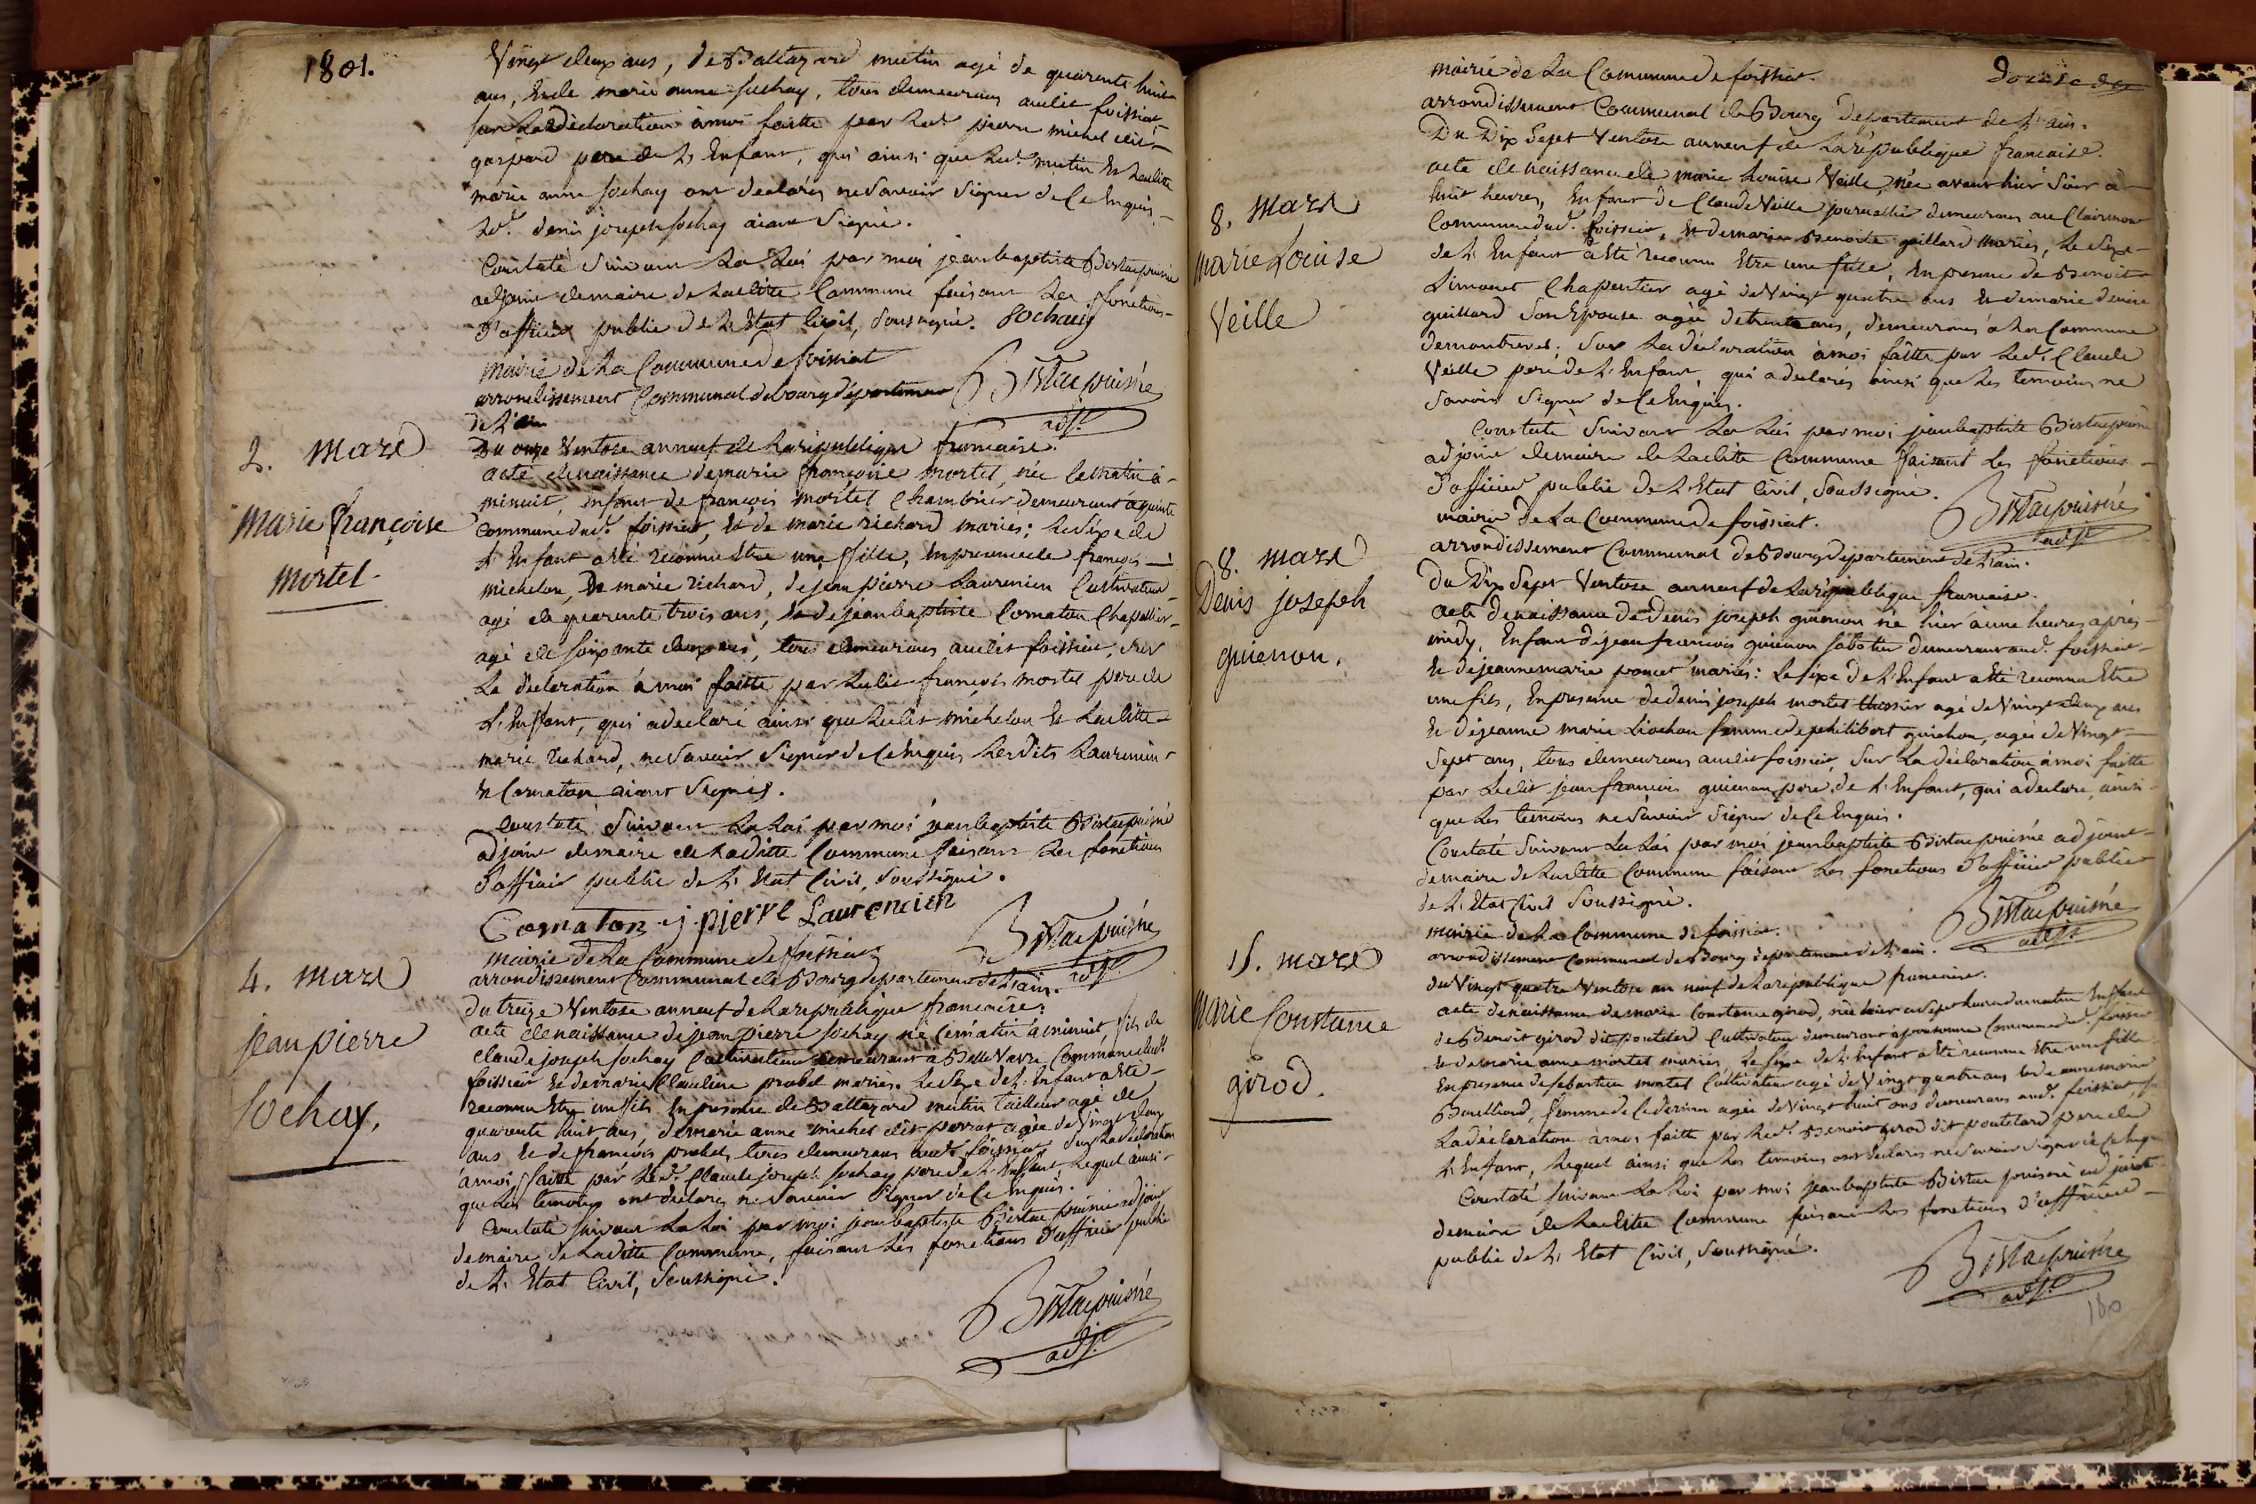 1801.
Vingt deux ans, de Baltazard mutin agé de quarente huit
ans, et de marie anne sochay, tous demeurans audit foissiat
sur la déclaration à moi faitte par led. pierre michel dit
gaspard pere de l'Enfant, qui ainsi que led. mutin et laditte
marie anne sochay ont declarés ne savoir signer de ce Enquis
led. denis joseph sochay aiant signé.
Constaté suivant la Loi par moi jean baptiste Bistac puisné
adjoint de maire de laditte Commune faisant les fonctions
d'officier public de l'Etat Civil, soussigné. Sochay
mairie de la Commune de foissiat Bistac puisné
arrondissement Communal de bourg departement adjt.
de l'ain
2. mars
Marie françoise
mortel
Du onze Ventose an neuf de la république francaise.
acte de naissance de marie françoise mortel, née ce matin à
minuit, enfant de françois mortel Chambrier demeurant à
commune dud. foissiat, et de marie richard mariés; le séxe de
l'Enfant a été reconnu Etre une fille, En presence de françois
michelon, de marie richard, de jean pierre Laurencien Cultivateur
agé de quarente trois ans, et de jean baptiste Cornaton Chapellier
agé de soixante deux ans, tous demeurans audit foissiat, sur
la declaration à moi faitte par ledit françois mortel pere de
l'Enfant, qui a declaré ainsi que ledit michelon et laditte
marie richard, ne savoir signer de ce Enquis, lesdits Laurencin
et Cornaton aiant signés.
Constaté suivant la Loi par moi jean baptiste Bistac puisné
adjoint de maire de laditte Commune faisant les fonctions
d'officier public de l'Etat Civil, soussigné.
Cornaton j. pierre Laurencien
Bistac puisné
adjt.
mairie de la Commune de foissiat
arrondissement Communal de Bourg departement de l'ain.
4. mars
jean pierre
sochay,
du treize Ventose an neuf de la republique francaise.
acte de naissance de jean pierre sochay né ce matin à minuit, fils de
claude joseph sochay Cultivateur demeurant a Belle Vavre Commune dud.
foissiat et de marie Claudine probel mariés. Le séxe de l'Enfant a été
reconnu Etre un fils En presence de Baltazard mutin tailleur agé de
quarente huit ans, de marie anne michel dit perrat agée de Vingt deux
ans et de françois probel, tous demeurans aud. foissiat sur la déclaration
à moi faitte par led. Claude joseph sochay pere de l'Enfant, lequel ainsi
que les temoins ont declarés ne savoir signer de ce Enquis.
Constaté suivant la Loi par moi jean baptiste Bistac puisné adjoint
de maire de laditte Commune, faisant les fonctions d'officier public
de l'Etat Civil, soussigné.
Bistac puisné
adjt.
mairie de la Commune de foissiat
arrondissement Communal de Bourg département de l'ain.
8. mars
Marie Louise
Veille
Du Dix Sept Ventose an neuf de la république francaise.
acte de naissance de marie Louise Veille, née avant hier soir à
huit heures, Enfant de Claude Veille journallier demeurant au Clairmont
Commune dud. foissiat, et de marie Benoite gaillard mariés, le séxe
de l'Enfant a été reconnu Etre une fille, En presence de Benoit
Limonet Chapentier agé de Vingt quatre ans et de marie denise
guillard son Epouse agée de trente ans, demeurans à la Commune
de montrevel, sur la déclaration à moi faitte par led. Claude
Veille pere de l'Enfant, qui a declarés ainsi que les temoins ne
savoir signer de ce Enquis.
Constaté suivant la Loi par moi jean baptiste Bistac puisné
adjoint de maire de laditte Commune faisant les fonctions
d'officier public de l'Etat Civil, soussigné.
Bistac puisné
adjt.
mairie de la Commune de foissiat.
arrondissement Communal de Bourg departement de l'ain.
8. mars
Denis joseph
guienon.
Du Dix Sept Ventose an neuf de la république francaise.
acte de naissance de denis joseph guienon né hier à une heure après
midy, Enfant de jean francois guienon sabotier demeurant aud. foissiat
et de jeanne marie poncet mariés: le séxe de l'Enfant a été reconnu Etre
un fils, En presence de denis joseph mortel tissier agé de Vingt deux ans
et de jeanne marie Liochon femme de philibert guichon, agée de Vingt
Sept ans, tous demeurans audit foissiat, sur la déclaration à moi faitte
par ledit jean françois guienon pere de l'Enfant, qui a declaré ainsi
que les temoins ne savoir signer de ce Enquis.
Constaté suivant la Loi par moi jean baptiste Bistac puisné adjoint
de maire de laditte Commune faisant les fonctions d'officier public
de l'Etat Civil soussigné.
Bistac puisné
adjt.
mairie de la Commune de foissiat.
arrondissement Communal de Bourg departement de l'ain.
15. mars
Marie Constance
girod.
du Vingt quatre Ventose an neuf de la république francaise.
acte de naissance de marie Constance girod, née hier a Sept heures du matin Enfant
de Benoit girod dit poutelard Cultivateur demeurant à Commune dud. foissiat
et de marie anne mortel mariés, Le séxe de l'Enfant a été reconnu Etre une fille
En presence de sebastien mortel Cultivateur agé de Vingt quatre ans et de anne marie
Bouilloud, femme de ce dernier agée de Vingt huit ans demeurans aud. foissiat sur
la déclaration à moi faitte par led. Benoit girod dit poutelard pere de
l'Enfant, lequel ainsi que les temoins ont declarés ne savoir signer de ce Enquis
Constaté suivant la Loi par moi jean baptiste Bistac puisné adjoint
de maire de laditte Commune faisant les fonctions d'officier
public de l'Etat Civil, soussigné.
Bistac puisné
adjt.
180